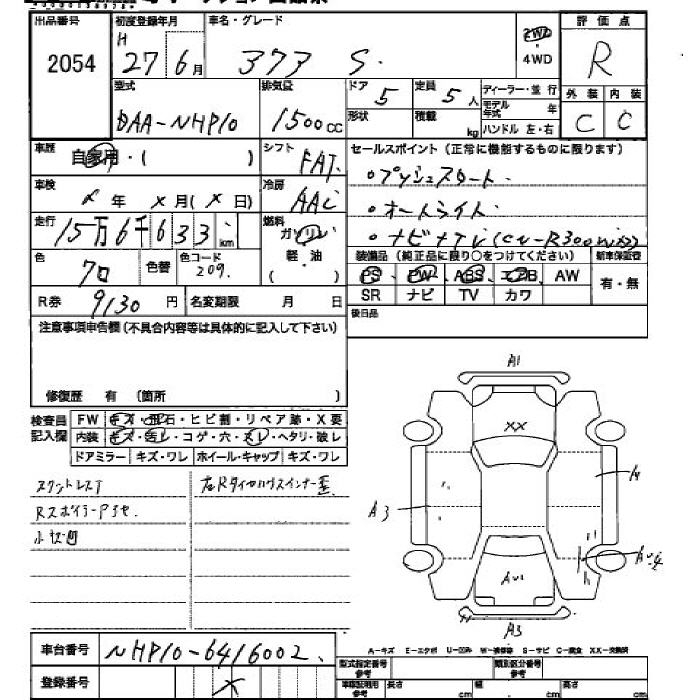 出品番号 初度登録年月 車名・グレード 評価点
2054 H 27年 6月 373 S. 2WD 4WD R
型式 排気量 ドア 5 定員 5人 ディーラー・並行 外装 内装
DAA-NHP10 1500cc 形状 積載 kg モデル年式 年 ハンドル 左・右 C C
車歴 自家用・( ) シフト FAT. セールスポイント(正常に機能するものに限ります)
車検 年 × 月( × 日) 冷房 AAC ・プッシュスタート.
走行 15万6千633km 燃料 ガソリン ・オートライト.
軽・油 ・ナビ
色 クロ 色替 色コード 209. ( ) 装備品(純正品に限り○をつけてください) 新車保証書
PS PW ABS エアB AW 有・無
R券 9130円 名変期限 月 日 SR ナビ TV カワ
注意事項申告欄(不具合内容等は具体的に記入して下さい) 後日品
修復歴 有 (箇所 )
検査員記入欄 FW キズ・飛石・ヒビ割・リペア跡・X要
内装 キズ・汚レ・コゲ・穴・スレ・ヘタリ・破レ
ドアミラー キズ・ワレ ホイール・キャップ キズ・ワレ
A1
XX
A3
Au1
A3
スペアレスT
小キズ凹
車台番号 NHP10-6416002.
A-キズ E-エクボ U-凹ミ W-補修跡 S-サビ C-腐食 XX-交換済
登録番号 × 型式指定番号 参考 類別区分番号 参考
車庫証明用 参考 長さ cm 幅 cm 高さ cm